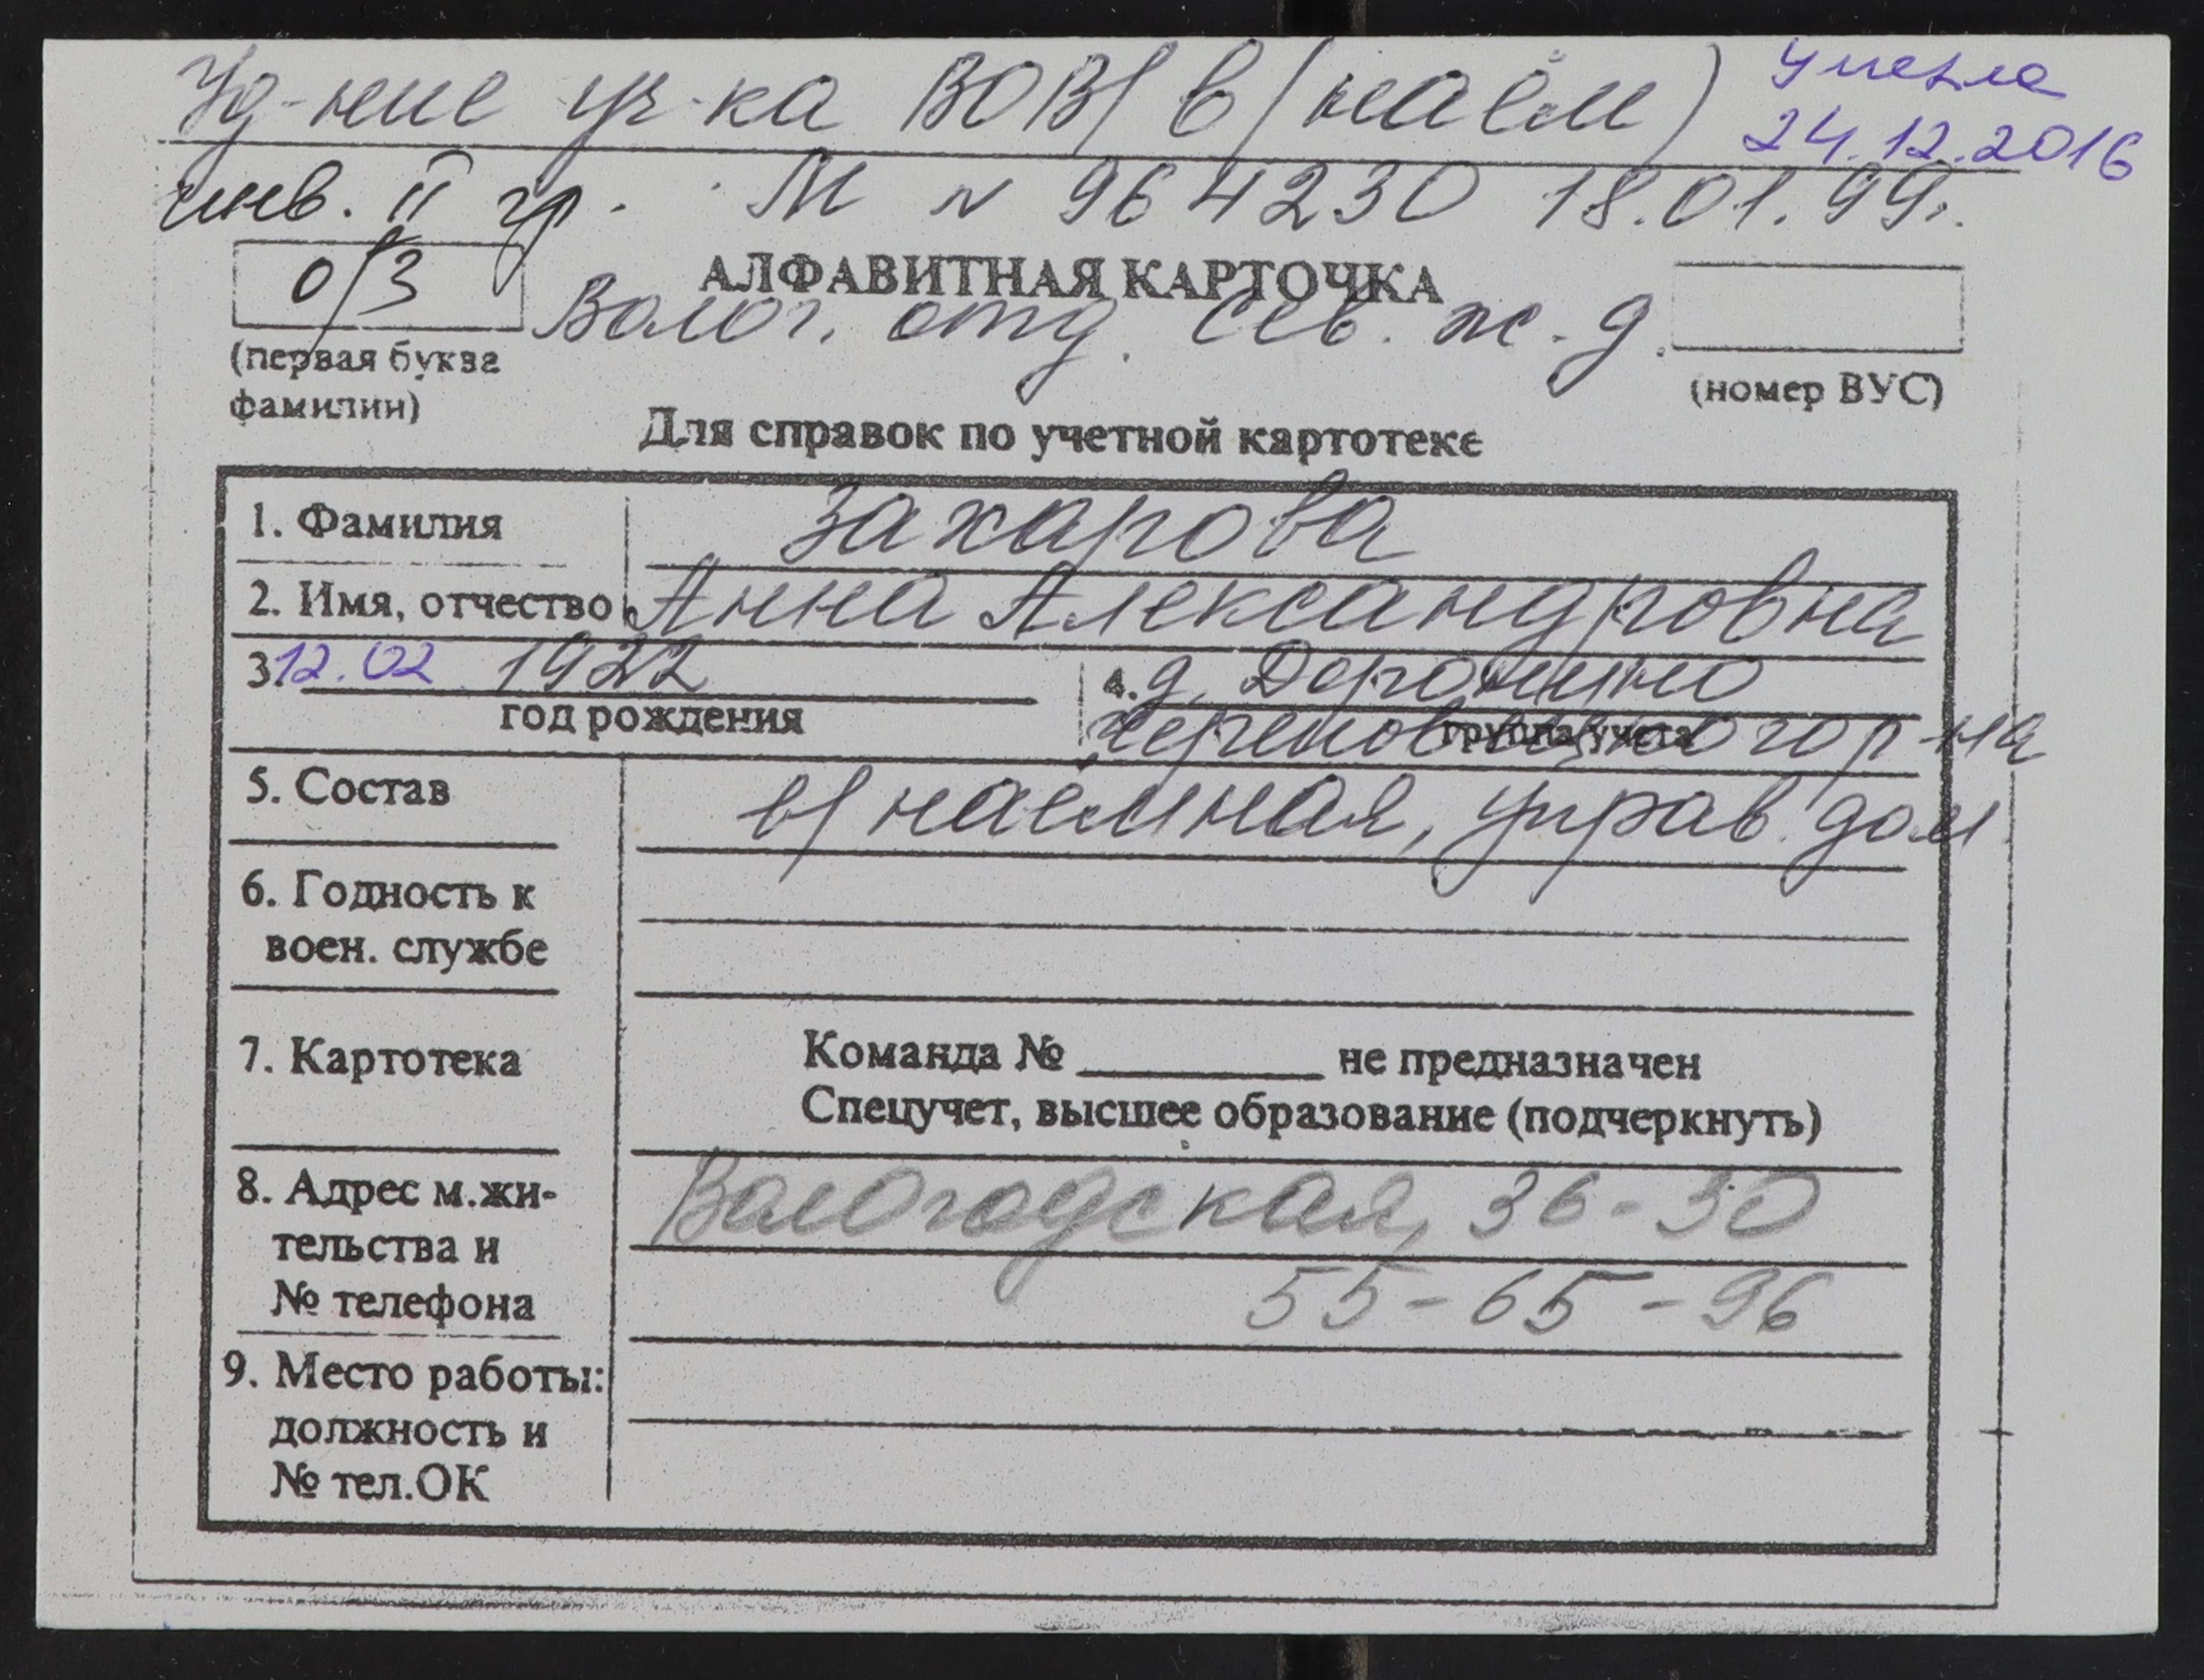 Уд-ние уч-ка ВОВ/в/наём)
умерла
24.12.2016
инв. II гр. М № 964230 18.01.99г.
о/З
АЛФАВИТНАЯ КАРТОЧКА
Волог. отд. Сев. ж.д.
(первая буква
фамилии)
(номер ВУС)
Для справок по учетной картотеке
1. Фамилия Захарова
2. Имя, отчество Анна Александровна
3. 12.02 1922
год рождения
4. д. Доронино
группа учета
Череповецкого р-на
5. Состав в/наёмная, управ. дом
6. Годность к
воен. службе
7. Картотека
Команда № ______ не предназначен
Спецучет, высшее образование (подчеркнуть)
8. Адрес м.жи-
тельства и
№ телефона
Вологодская, 36-30
55-65-96
9. Место работы:
должность и
№ тел.ОК